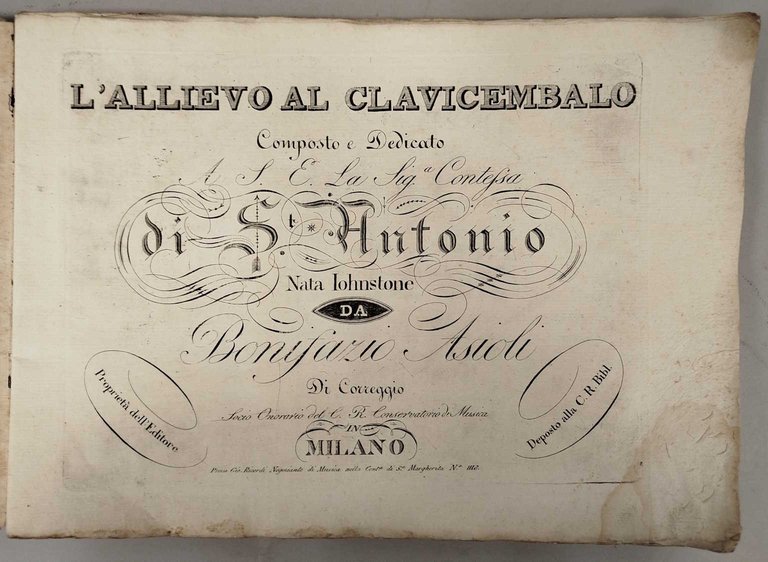 L'ALLIEVO AL CLAVICEMBALO
Composto e Dedicato
A S. E. La Sig.a Contessa
di S.t Antonio
Nata Iohnstone
DA
Bonifazio Asioli
Di Correggio
Socio Onorario del C. R. Conservatorio di Musica
IN
MILANO
Presso Gio. Ricordi Negoziante di Musica nella Cont.a di S.ta Margherita N.o 1118.
Proprietà dell'Editore
Deposto alla C. R. Bibl.